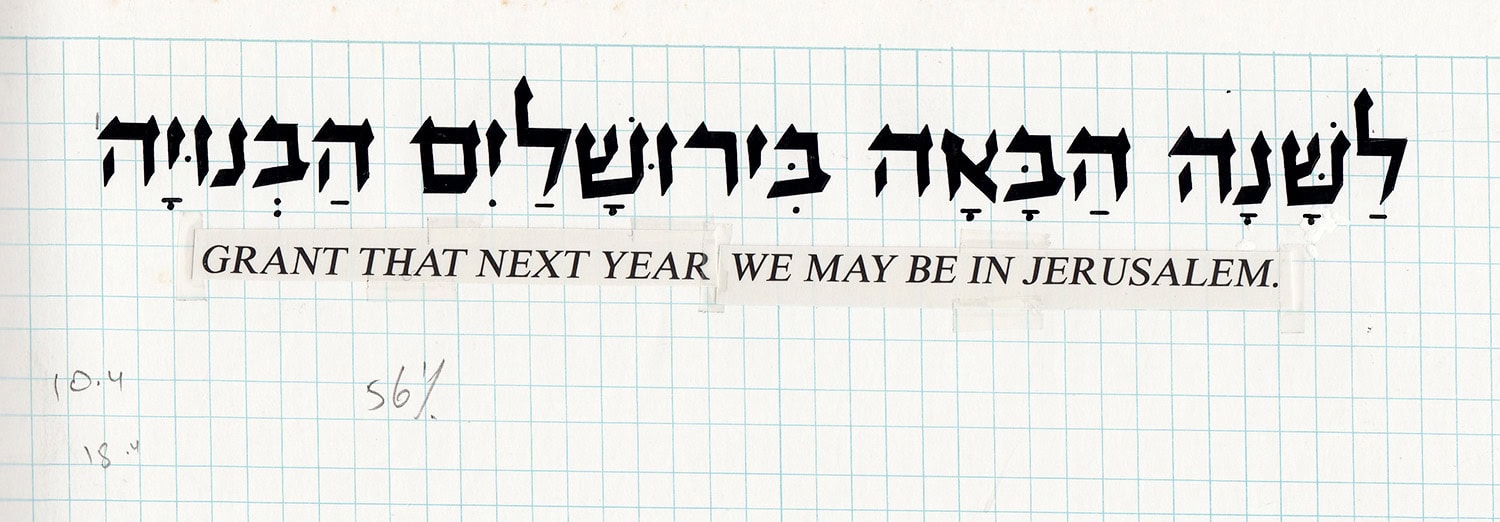 לַשָּׁנָה הַבָּאָה בִּירוּשָׁלַיִם הַבְּנוּיָה
GRANT THAT NEXT YEAR WE MAY BE IN JERUSALEM.
10.4 56%
18.4